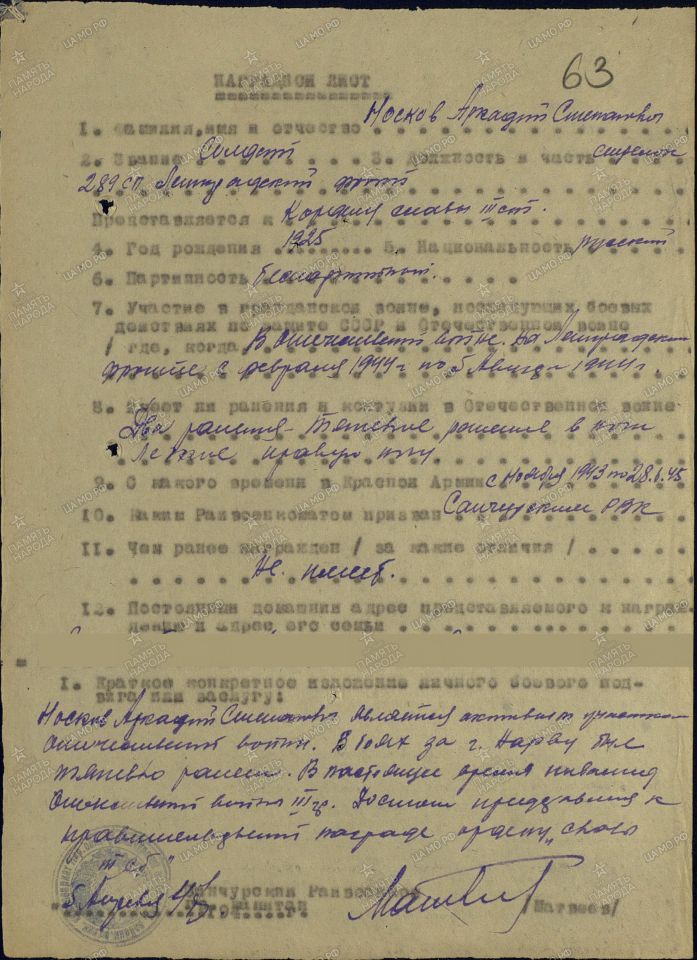 63
НАГРАДНОЙ ЛИСТ
1. Фамилия, имя и отчество Носков Аркадий Степанович
2. Звание Солдат 3. Должность и часть стрелок
289 сп. Ленинградский фронт
Представляется к Ордену славы III ст.
4. Год рождения 1925 5. Национальность русский
6. Партийность беспартийный.
7. Участие в гражданской войне, последующих боевых
действиях по защите СССР и Отечественной войне
/ где, когда В отечествен. войне. на Ленинградском
фронте с февраля 1944 г по 5 Август 1944 г.
8. Имеет ли ранения и контузии в Отечественной войне
Два ранения - тяжелые ранение в ноги
легкое правую ногу.
9. С какого времени в Красной Армии с Ноября 1943 по 28.1.45
10. Каким Райвоенкоматом призван Санчурским РВК
11. Чем ранее награжден / за какие отличия /
Не имеет.
12. Постоянный домашний адрес представляемого к награж
дению и адрес его семьи
I. Краткое конкретное изложение личного боевого под-
вига или заслуг:
Носков Аркадий Степанович является активным участником
отечественной войны. В боях за г. Нарву был
тяжело ранен. В настоящее время инвалид
Отечественной войны III гр. Достоин представления к
правительственной награде ордену „Славы
III ст."
Санчурский Райвоенком
5 Апреля 194 г. капитан /Матвеев/